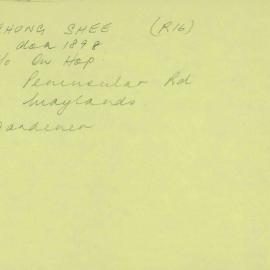 CHONG SHEE (R16)
doa 1898
c/o On Hop
Peninsular Rd
Maylands
Gardener